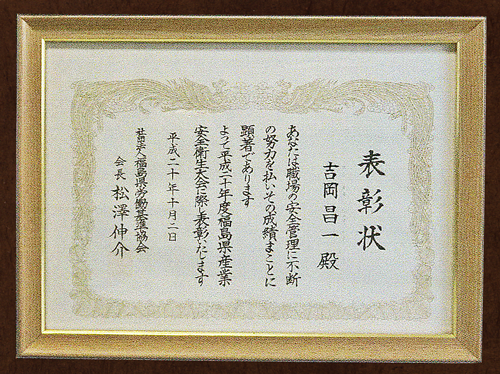 表彰状
吉岡昌一殿
あなたは職場の安全管理に不断
の努力を払いその成績まことに
顕著であります
よって平成二十年度福島県産業
安全衛生大会に際し表彰いたします
平成二十年十月二日
社団法人福島県労働基準協会
会長 松澤伸介